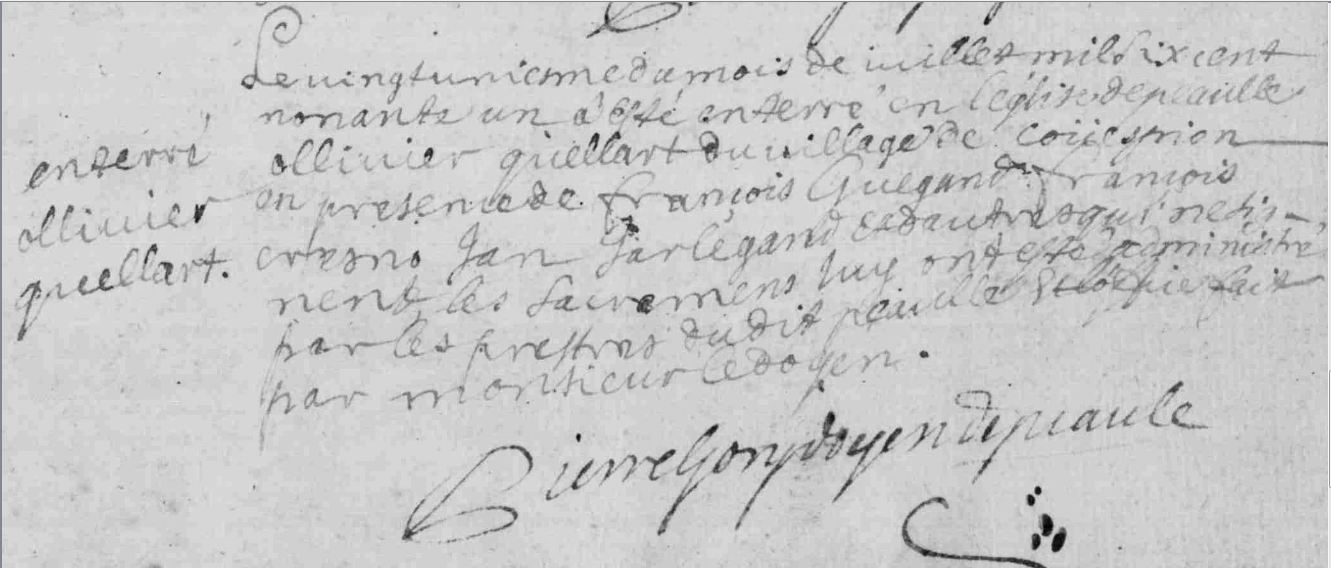 enterré
ollivier
quellart.
Le vingtuniesme du mois de iuillet mil six cent
nonante un a esté enterré en l'église de peaulle
ollivier quellart du village de
en presence de françois Guegand françois
cresno Jan Jarlegand et d'autres qui ne sig-
nent, les sacremens luy ont esté administré
par les prestres du dit peaulle et fait
par monsieur le doyen.
Pierre doyen de peaule